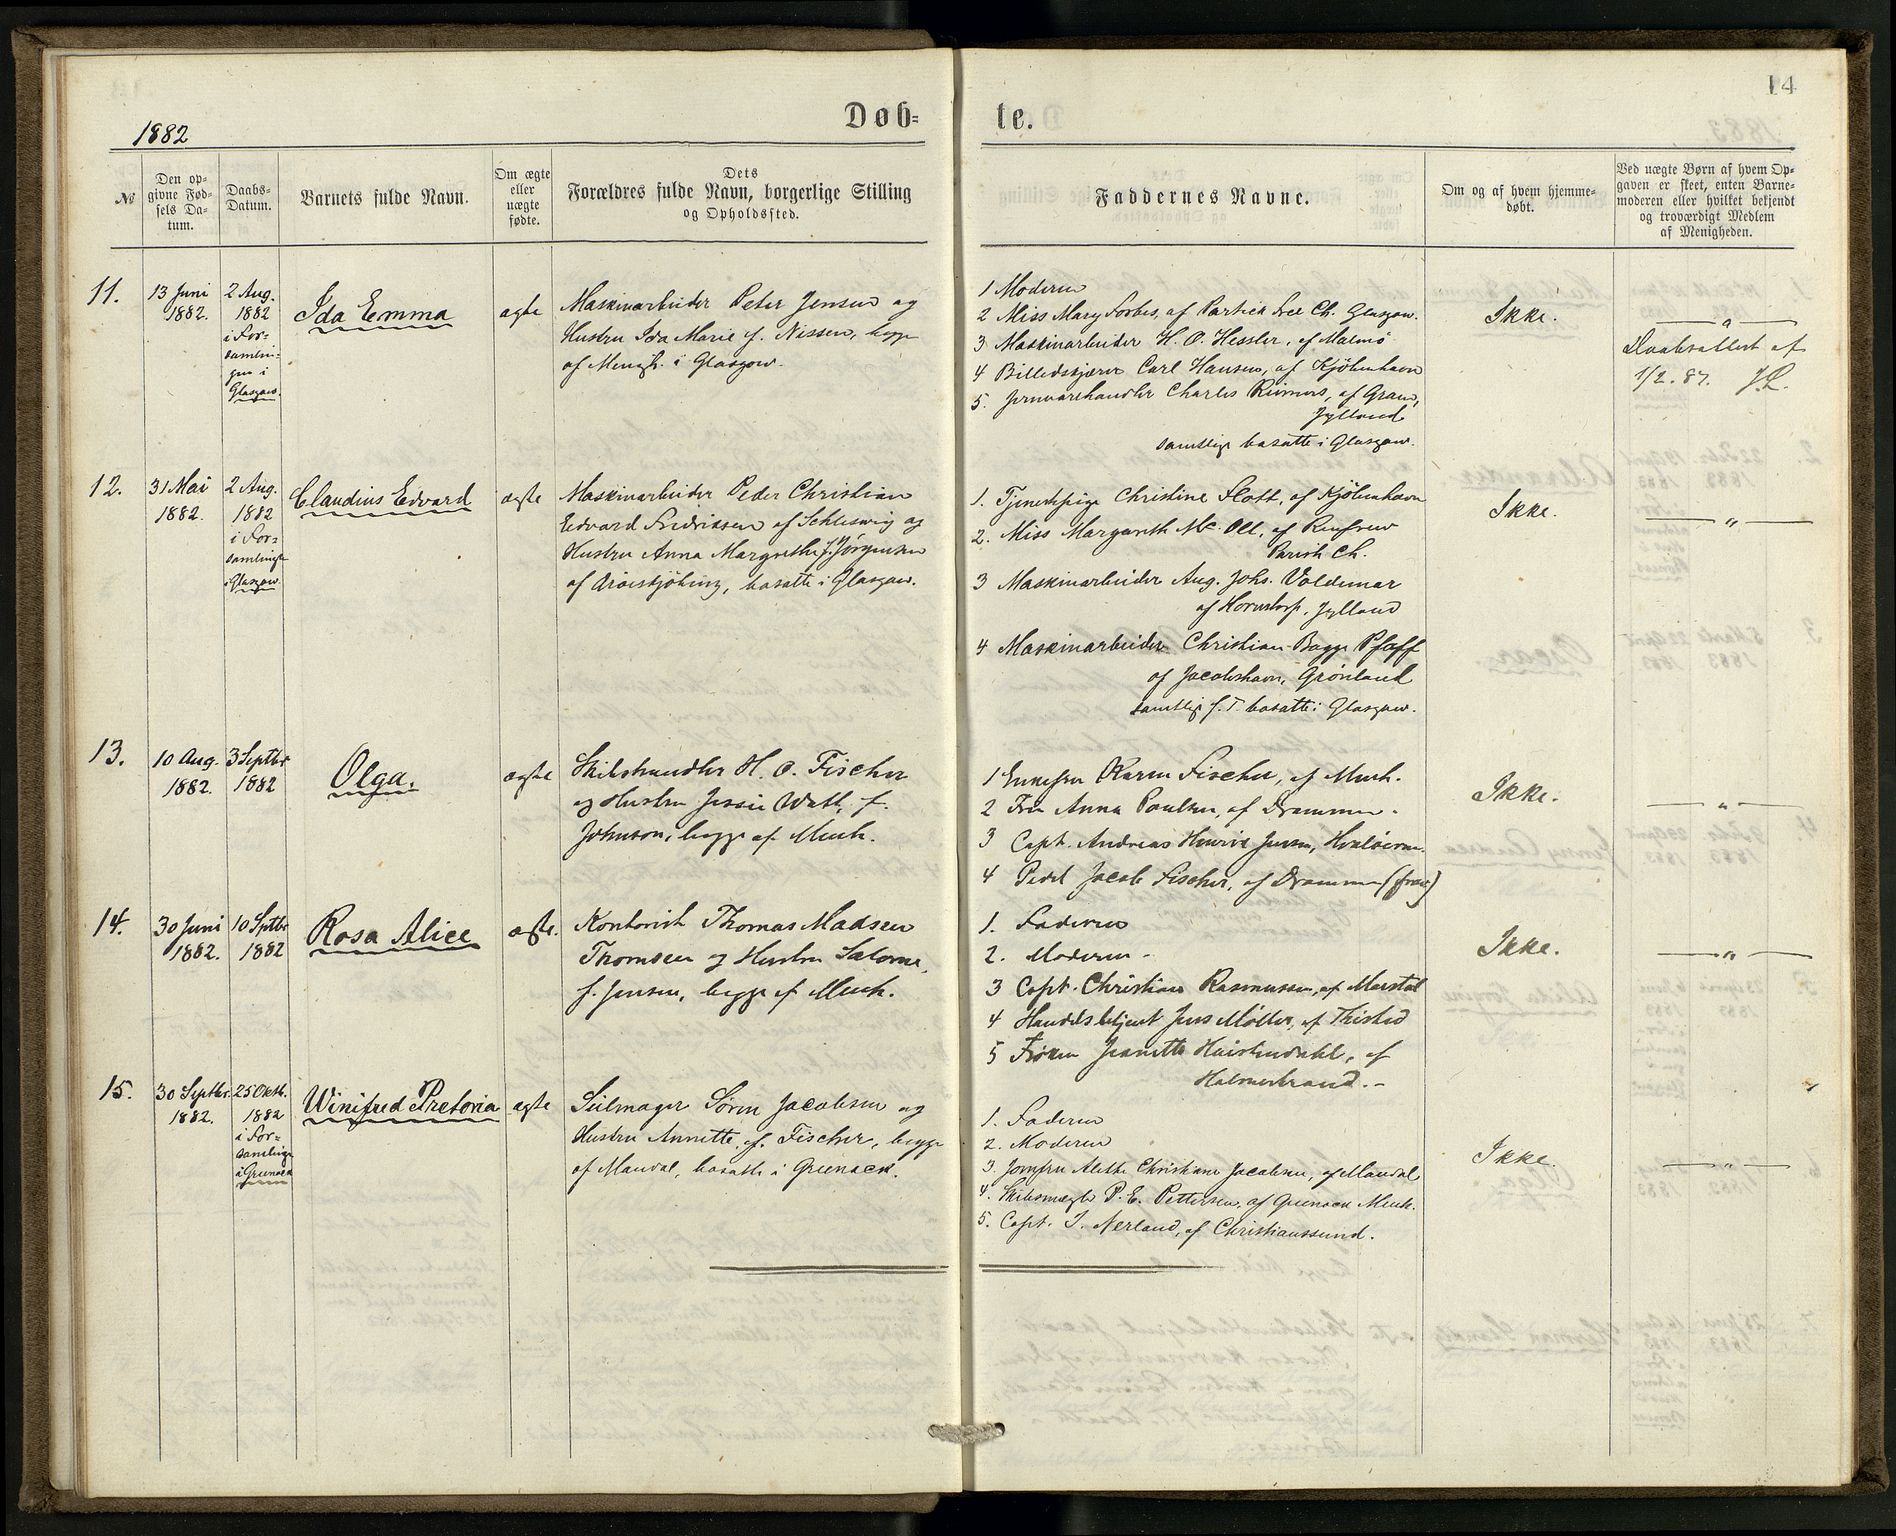 14
Døb=
te.
1882
№
Den op=
givne Fød=
sels Da=
tum.
Daabs=
Datum.
Barnets fulde Navn.
Om ægte
eller
uægte
fødte.
Dets
Forældres fulde Navn, borgerlige Stilling
og Opholdssted.
Faddernes Navne.
Om og af hvem hjemme=
døbt.
Ved uægte Børn af hvem Op=
gaven er skeet, enten Barne=
moderen eller hvilket bekjendt
og troværdigt Medlem
af Menigheden.
11.
13 Juni
1882.
2 Aug.
1882
i For=
samlin-
gen i
Glasgow.
Ida Emma
ægte
Maskinarbeider Peter Jensen og
Hustru Ida Marie f. Nissen, begge
af Menigh. i Glasgow.
1 Moderen
2 Miss Mary Forbes, af Partick Free Ch. Glasgow.
3 Maskinarbeider H. O. Hessler, af Malmö
4 Billedskjærer Carl Hansen, af Kjøbenhavn
5. Jernvarehandler Charles Reimers, af Gram,
Jylland
samtlige bosatte i Glasgow.
Ikke.
"
Daabsattest af
1/2. 87.
12.
31 Mai
1882.
2 Aug.
1882
i For=
samlinge
i Glasgow.
Claudius Edvard
ægte
Maskinarbeider Peder Christian
Edvard Fredriksen af Schleswig og
Hustru Anna Margrethe f. Jörgensen
af Ærøeskjøbing, bosatte i Glasgow.
1. Tjenestepige Christine Slott, af Kjøbenhavn
2. Miss Margareth Mc. Oll, af Renfrew
Parish Ch.
3 Maskinarbeider Aug. Johs. Voldemar
af Hornstorp, Jylland
4 Maskinarbeider Christian Bagge Pfaff
af Jacobshavn, Grönland
samtlige f. T. bosatte i Glasgow.
Ikke.
"
13.
10 Aug.
1882.
3 Septbr
1882
Olga.
ægte
Skibshandler H. O. Fischer
og Hustru Jessie Watt, f.
Johnson, begge af Menh.
1 Enkefru Karen Fischer, af Menh.
2 Fru Anna Poulsen, af Drammen.
3 Capt. Andreas Henrik Jensen, Hvaløerne.
4 Peder Jacob Fischer, af Drammen (frav.)
Ikke.
"
14.
30 Juni
1882.
10 Septbr
1882
Rosa Alice
ægte.
Kontorist Thomas Madsen
Thomsen og Hustru Salome,
f. Jensen, begge af Menh.
1. Faderen
2. Moderen -
3 Capt. Christian Rasmussen, af Marstal
4 Handelsbetjent Jens Möller, af Thisted
5 Frøken Jeanette Huistendahl, af
Holmestrand. -
Ikke.
"
15.
30 Septbr.
1882.
25 Oktb.
1882
i For=
samlinge
i Greenock
Winifred Pretoria
ægte
Seilmager Sören Jacobsen og
Hustru Annette, f. Fischer, begge
af Mandal, bosatte i Greenock.
1. Faderen
2. Moderen
3. Jomfru Alethe Christiane Jacobsen, af Mandal
4. Skibsmægler P. E. Pettersen, af Greenock Menh.
5. Capt. T. Nerland, af Christianssund.
Ikke.
"